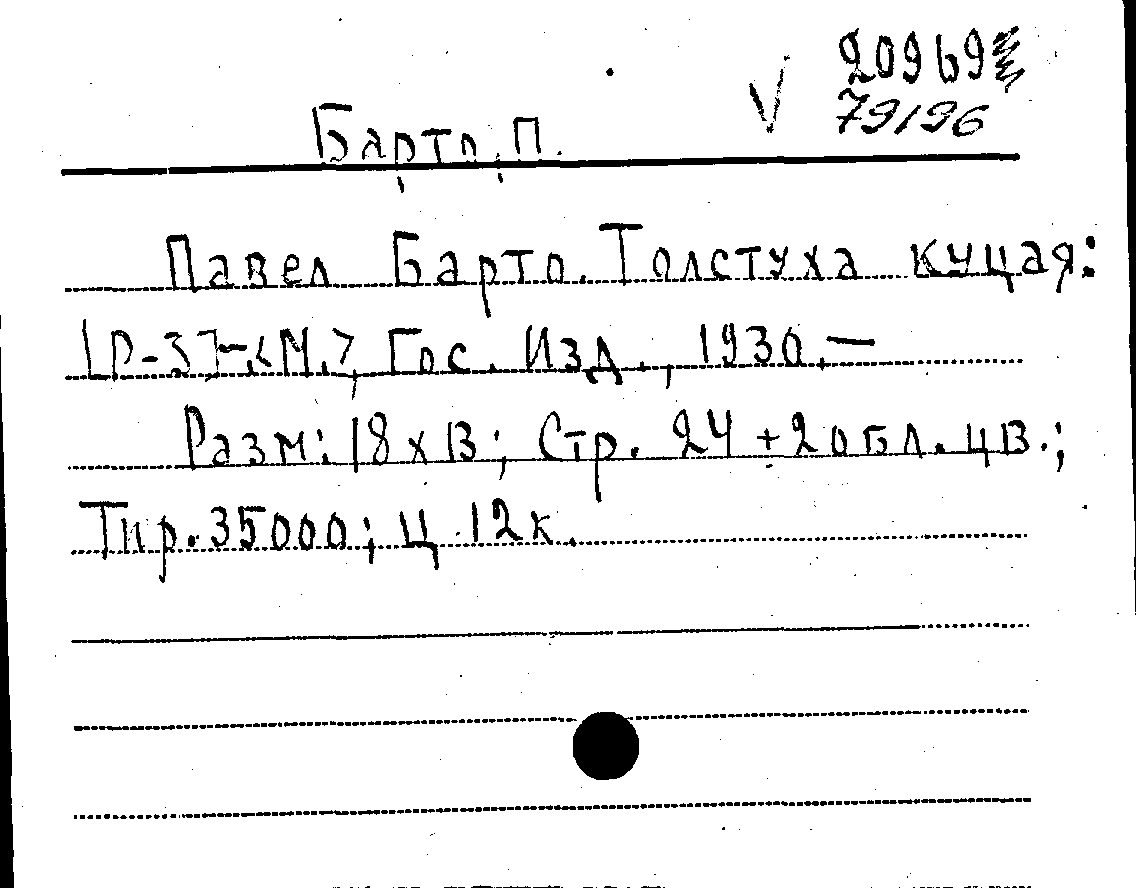 20969
79196
Барто, П.
Павел Барто. Толстуха куцая:
[Р-з]-<М.>, Гос. Изд., 1930.—
Разм: 18х13; Стр. 24 + 2 обл. цв.;
Тир. 35000; Ц. 12к.